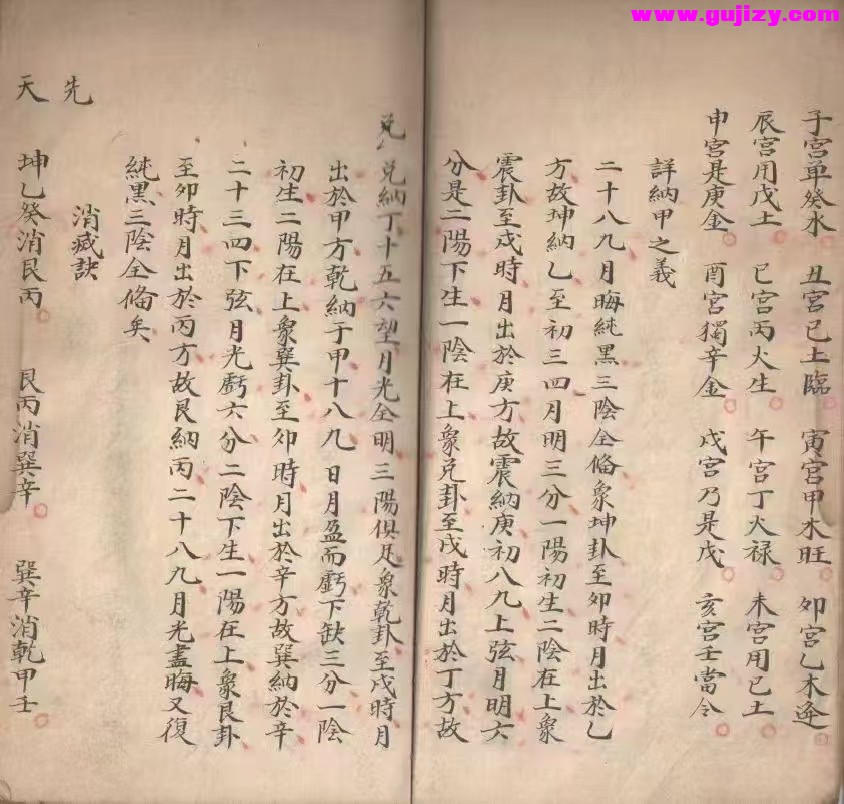 www.gujizy.com
子宮單癸水 丑宮已土臨 寅宮甲木旺 卯宮乙木逢
辰宮用戊土 已宮丙火生 午宮丁火禄 未宮用已土
申宮是庚金 酉宮獨辛金 戌宮乃是戊 亥宮壬當令
詳納甲之義
二十八九月晦純黑三陰全偹象坤卦至卯時月出於乙
方故坤納乙至初三四月明三分一陽初生二陰在上象
震卦至戌時月出於庚方故震納庚初八九上弦月明六
分是二陽下生一陰在上象兑卦至戌時月出於丁方故
兑 兑納丁十五六望月光全明三陽俱足象乾卦至戌時月
出於甲方乾納于甲十八九日月盈而虧下缺三分一陰
初生二陽在上象巽卦至卯時月出於辛方故巽納於辛
二十三四下弦月光虧六分二陰下生一陽在上象艮卦
至卯時月出於丙方故艮納丙二十八九月光盡晦又復
純黑三陰全偹矣
消滅訣
先
天 坤乙癸消艮丙 艮丙消巽辛 巽辛消乾甲壬